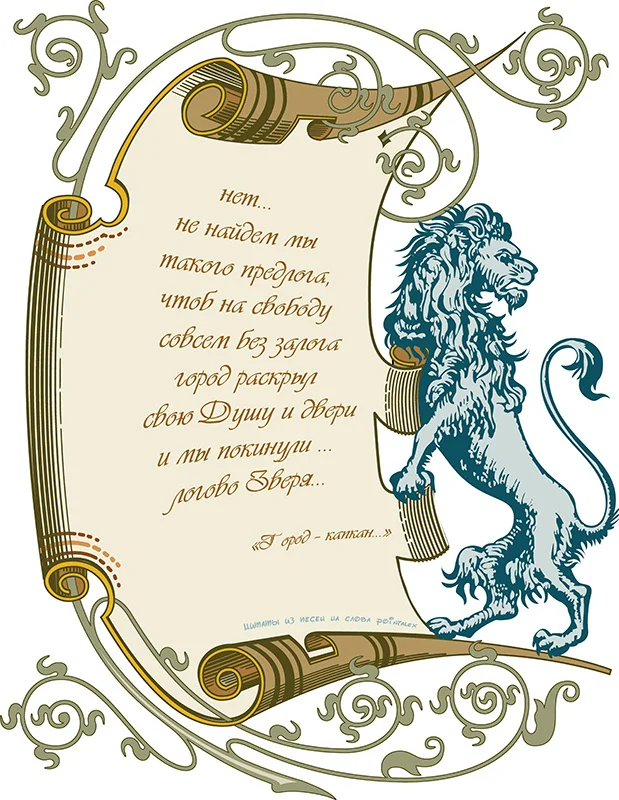 нет...
не найдем мы
такого предлога,
чтоб на свободу
совсем без залога
город раскрыл
свою Душу и двери
и мы покинули ...
логово Зверя...
«Город - капкан...»
цитаты из песен на слова